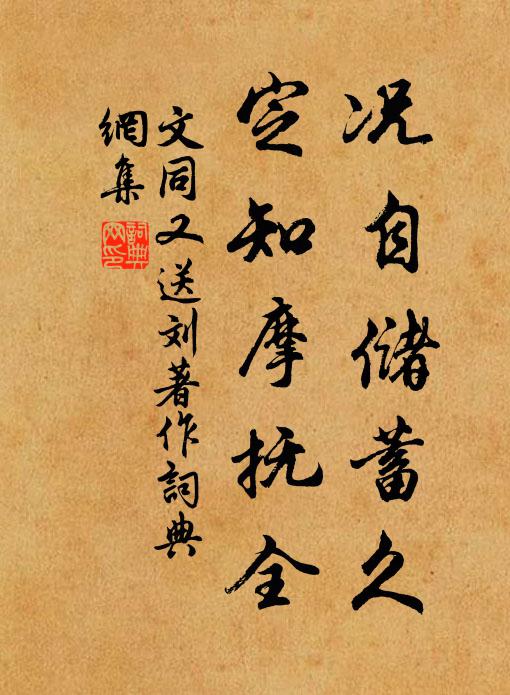 况自储蓄久
定知摩抚全
文同又送刘著作詞典
網集
詞典網印